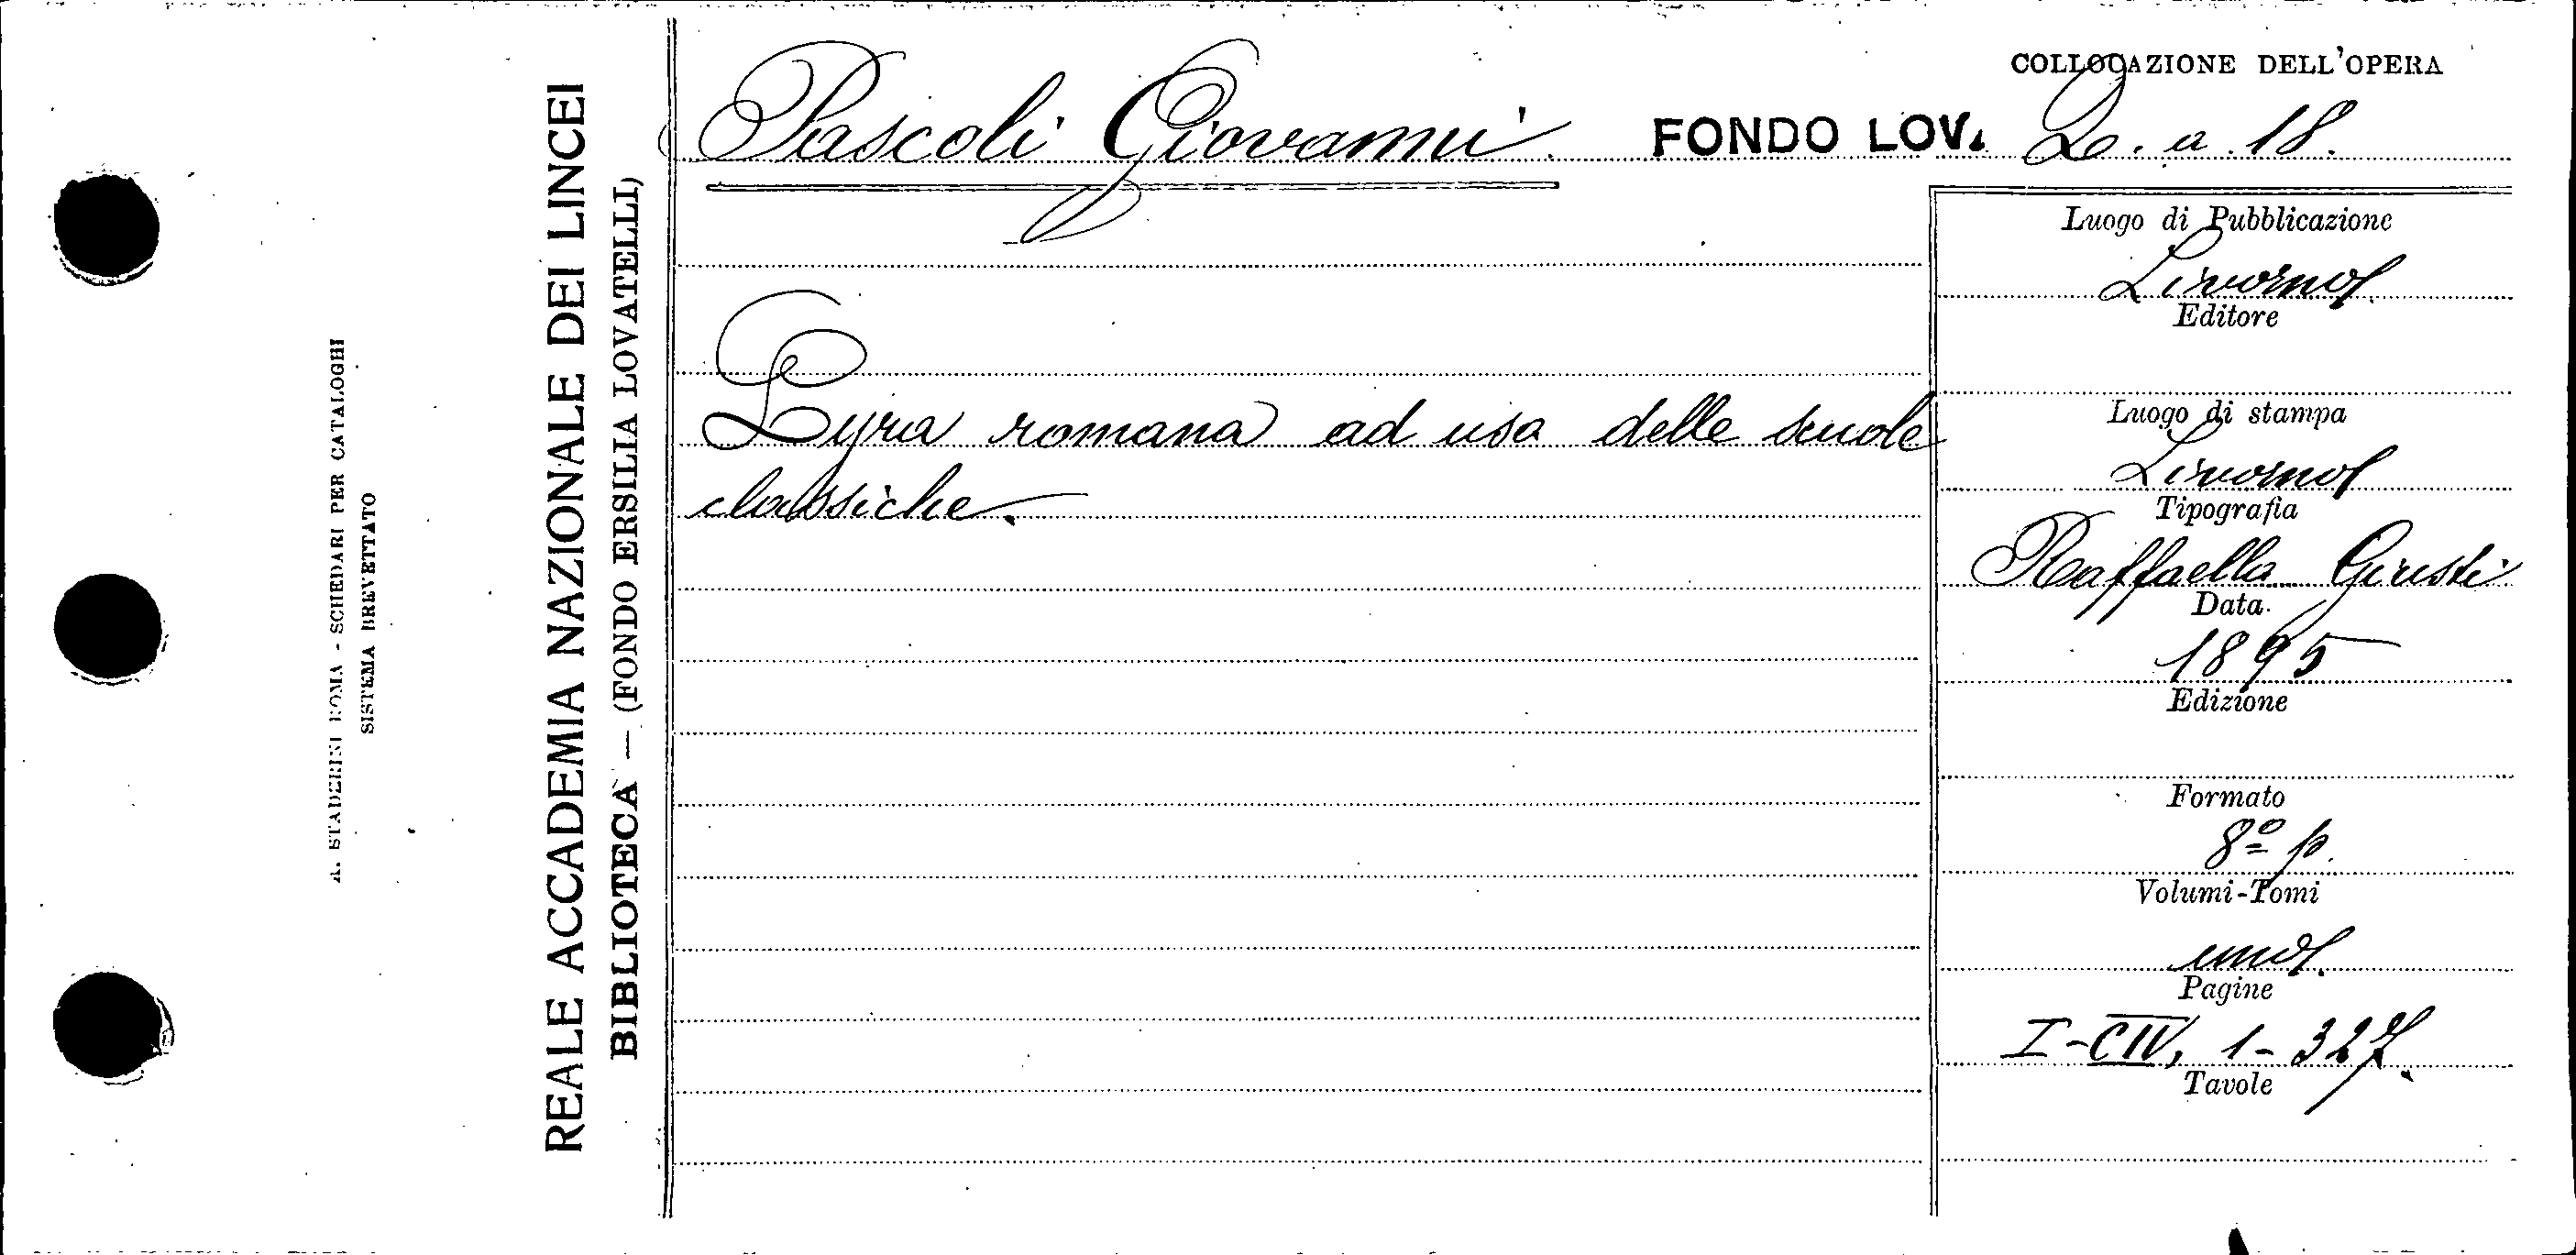 A. STADERINI ROMA - SCHEDARI PER CATALOGHI
SISTEMA BREVETTATO
REALE ACCADEMIA NAZIONALE DEI LINCEI
BIBLIOTECA — (FONDO ERSILIA LOVATELLI)
Pascoli Giovanni
COLLOCAZIONE DELL'OPERA
FONDO LOV. 2. a 18.
Lyra romana ad uso delle scuole
classiche.
Luogo di Pubblicazione
Livorno
Editore
Luogo di stampa
Livorno
Tipografia
Raffaella Giusti
Data
1895
Edizione
Formato
8º p.
Volumi-Tomi
uno
Pagine
I-CIV, 1-327.
Tavole